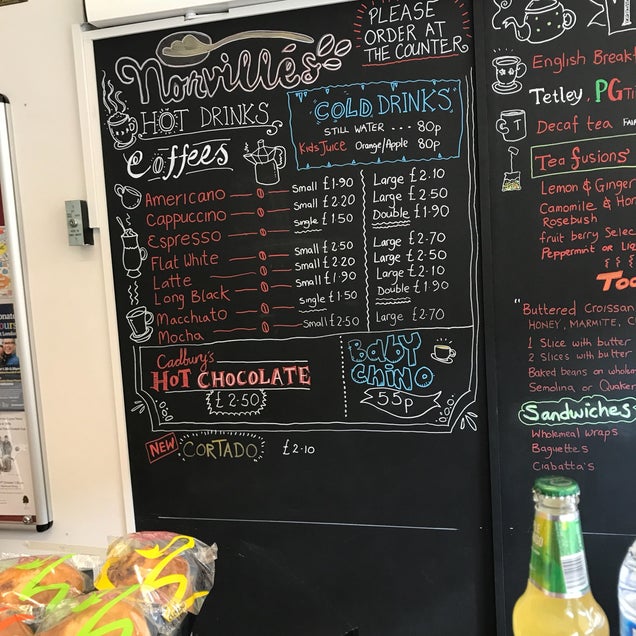 Norvillés
PLEASE
ORDER AT
THE COUNTER
HOT DRINKS
Coffees
COLD DRINKS
STILL WATER ... 80p
Kids Juice Orange/Apple 80p
Americano Small £1.90 Large £2.10
Cappuccino Small £2.20 Large £2.50
Espresso Single £1.50 Double £1.90
Flat White Small £2.50 Large £2.70
Latte Small £2.20 Large £2.50
Long Black Small £1.90 Large £2.10
Macchiato Single £1.50 Double £1.90
Mocha Small £2.50 Large £2.70
Cadbury's
HOT CHOCOLATE
£2.50
BABY
CHINO
55p
NEW CORTADO £2.10
English Break
Tetley, PG
T
Decaf tea
Tea fusions
Lemon & Ginger
Camomile & Hon
Rosebush
fruit berry Selec
Peppermint or
Too
"Buttered Croissan
HONEY, MARMITE,
1 Slice with butter
2 Slices with butter
Baked beans on wholem
Semolina or Quaker
Sandwiches
Wholemeal Wraps
Baguettes
Ciabatta's